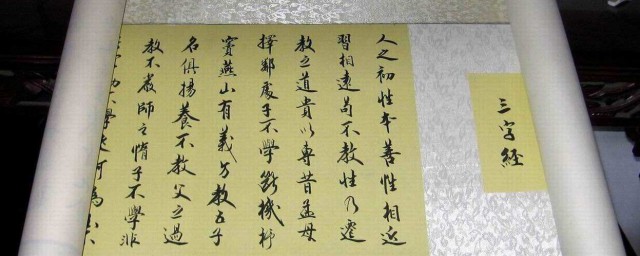 三字經
人之初性本善性相近
習相遠苟不教性乃遷
教之道貴以專昔孟母
擇鄰處子不學斷機杼
竇燕山有義方教五子
名俱揚養不教父之過
教不嚴師之惰子不學非
幼不學老何為